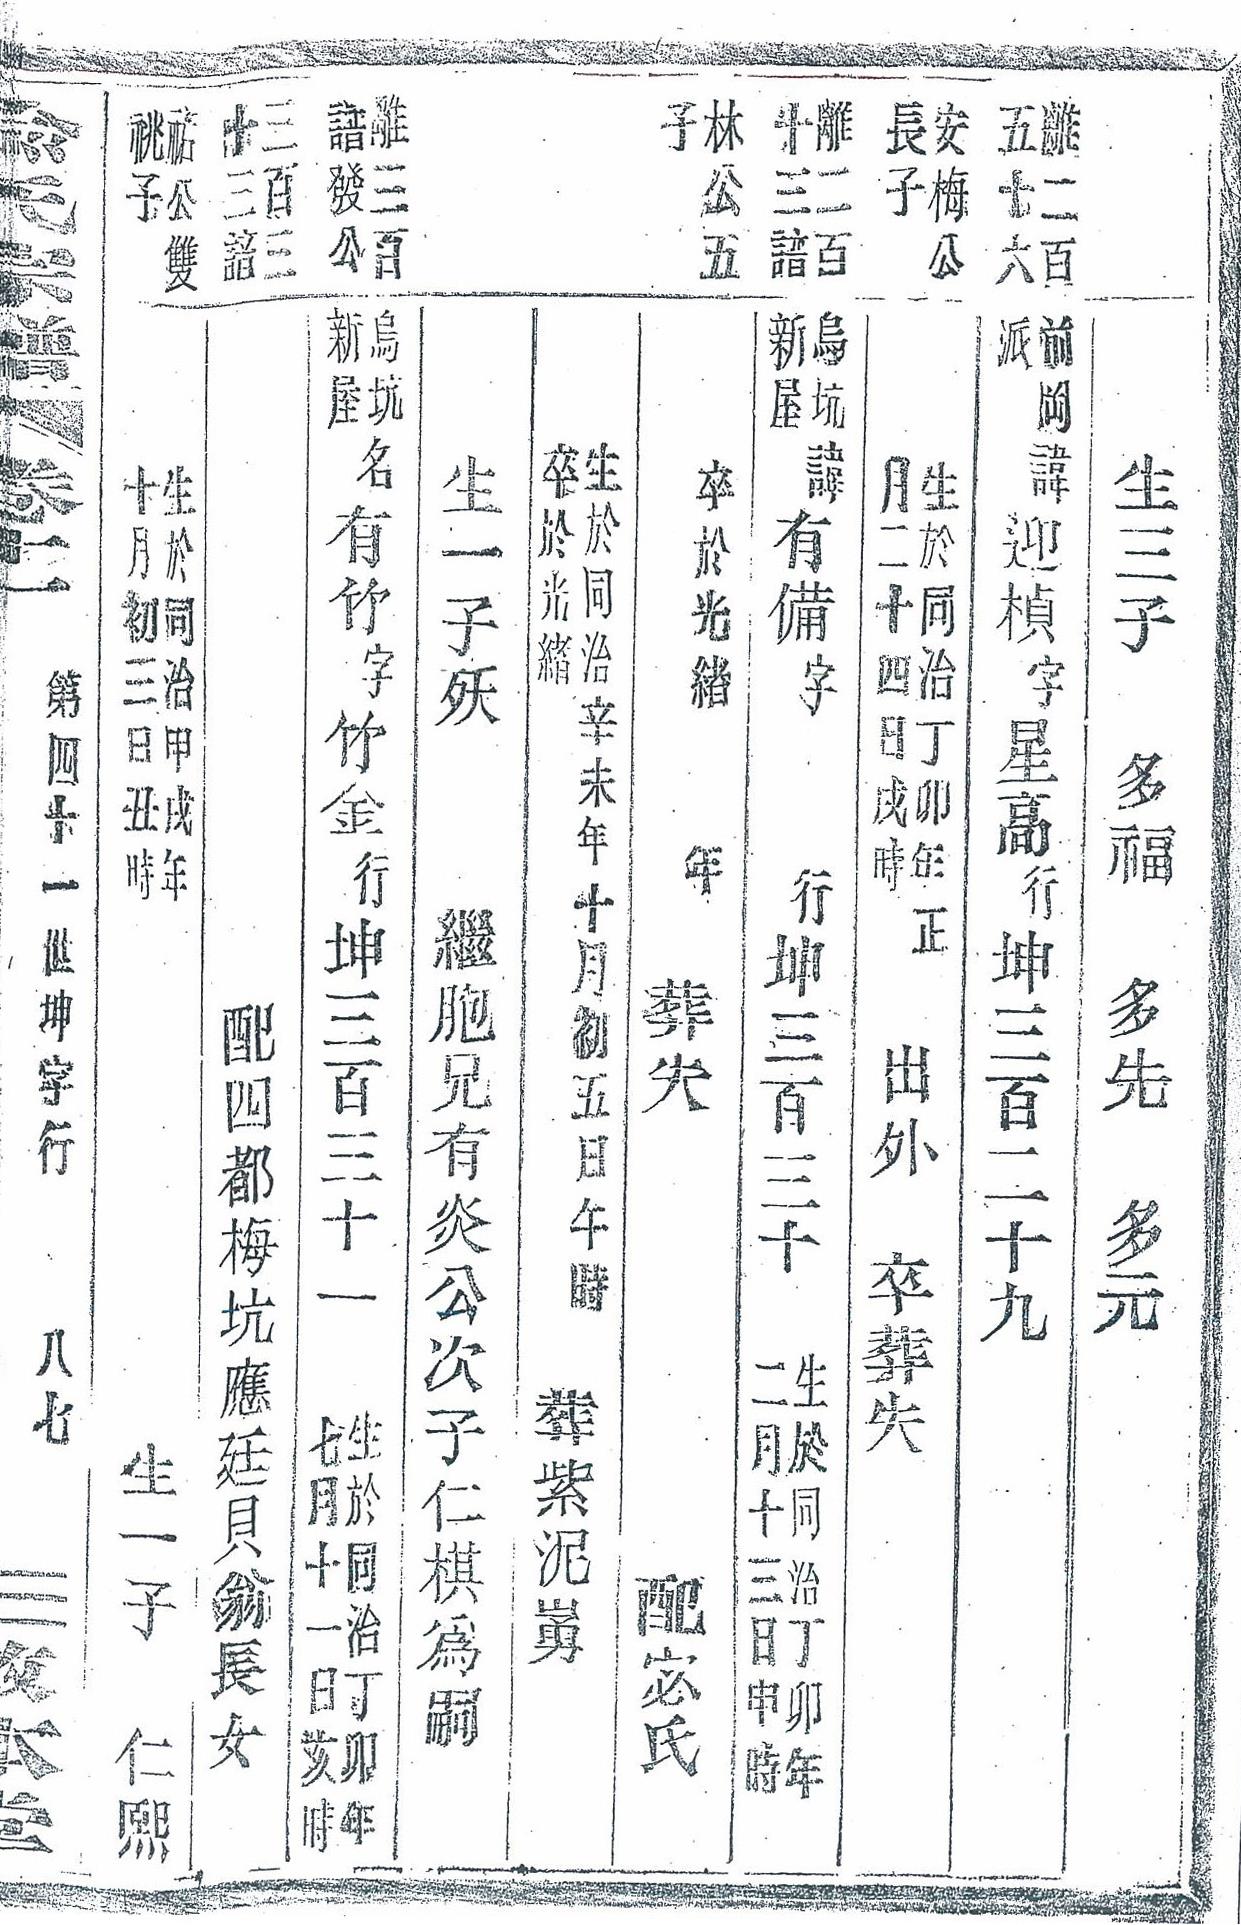 生三子 多福 多先 多元
離二百
五十六
前岡
派
諱迎楨字星高行坤三百二十九
安梅公
長子
生於同治丁卯年正
月二十四日戌時
出外 卒葬失
離二百
十三譜
烏坑
新屋
諱有備字 行坤三百三十
生於同治丁卯年
二月十三日申時
林公五
子
卒於光緒 年 葬失 配宓氏
生於同治辛未年十月初五日午時
卒於光緒
葬紫泥嶴
生一子殀 繼胞兄有炎公次子仁棋為嗣
離三百
譜發公
烏坑
新屋
名有竹字竹金行坤三百三十一
生於同治丁卯年
七月十一日亥時
三百三
十三譜
配四都梅坑應廷貝翁長女
祜公雙
祧子
生於同治甲戌年
十月初三日丑時
生一子 仁熙
氏宗譜 卷二
第四十一世坤字行
八七
本堂